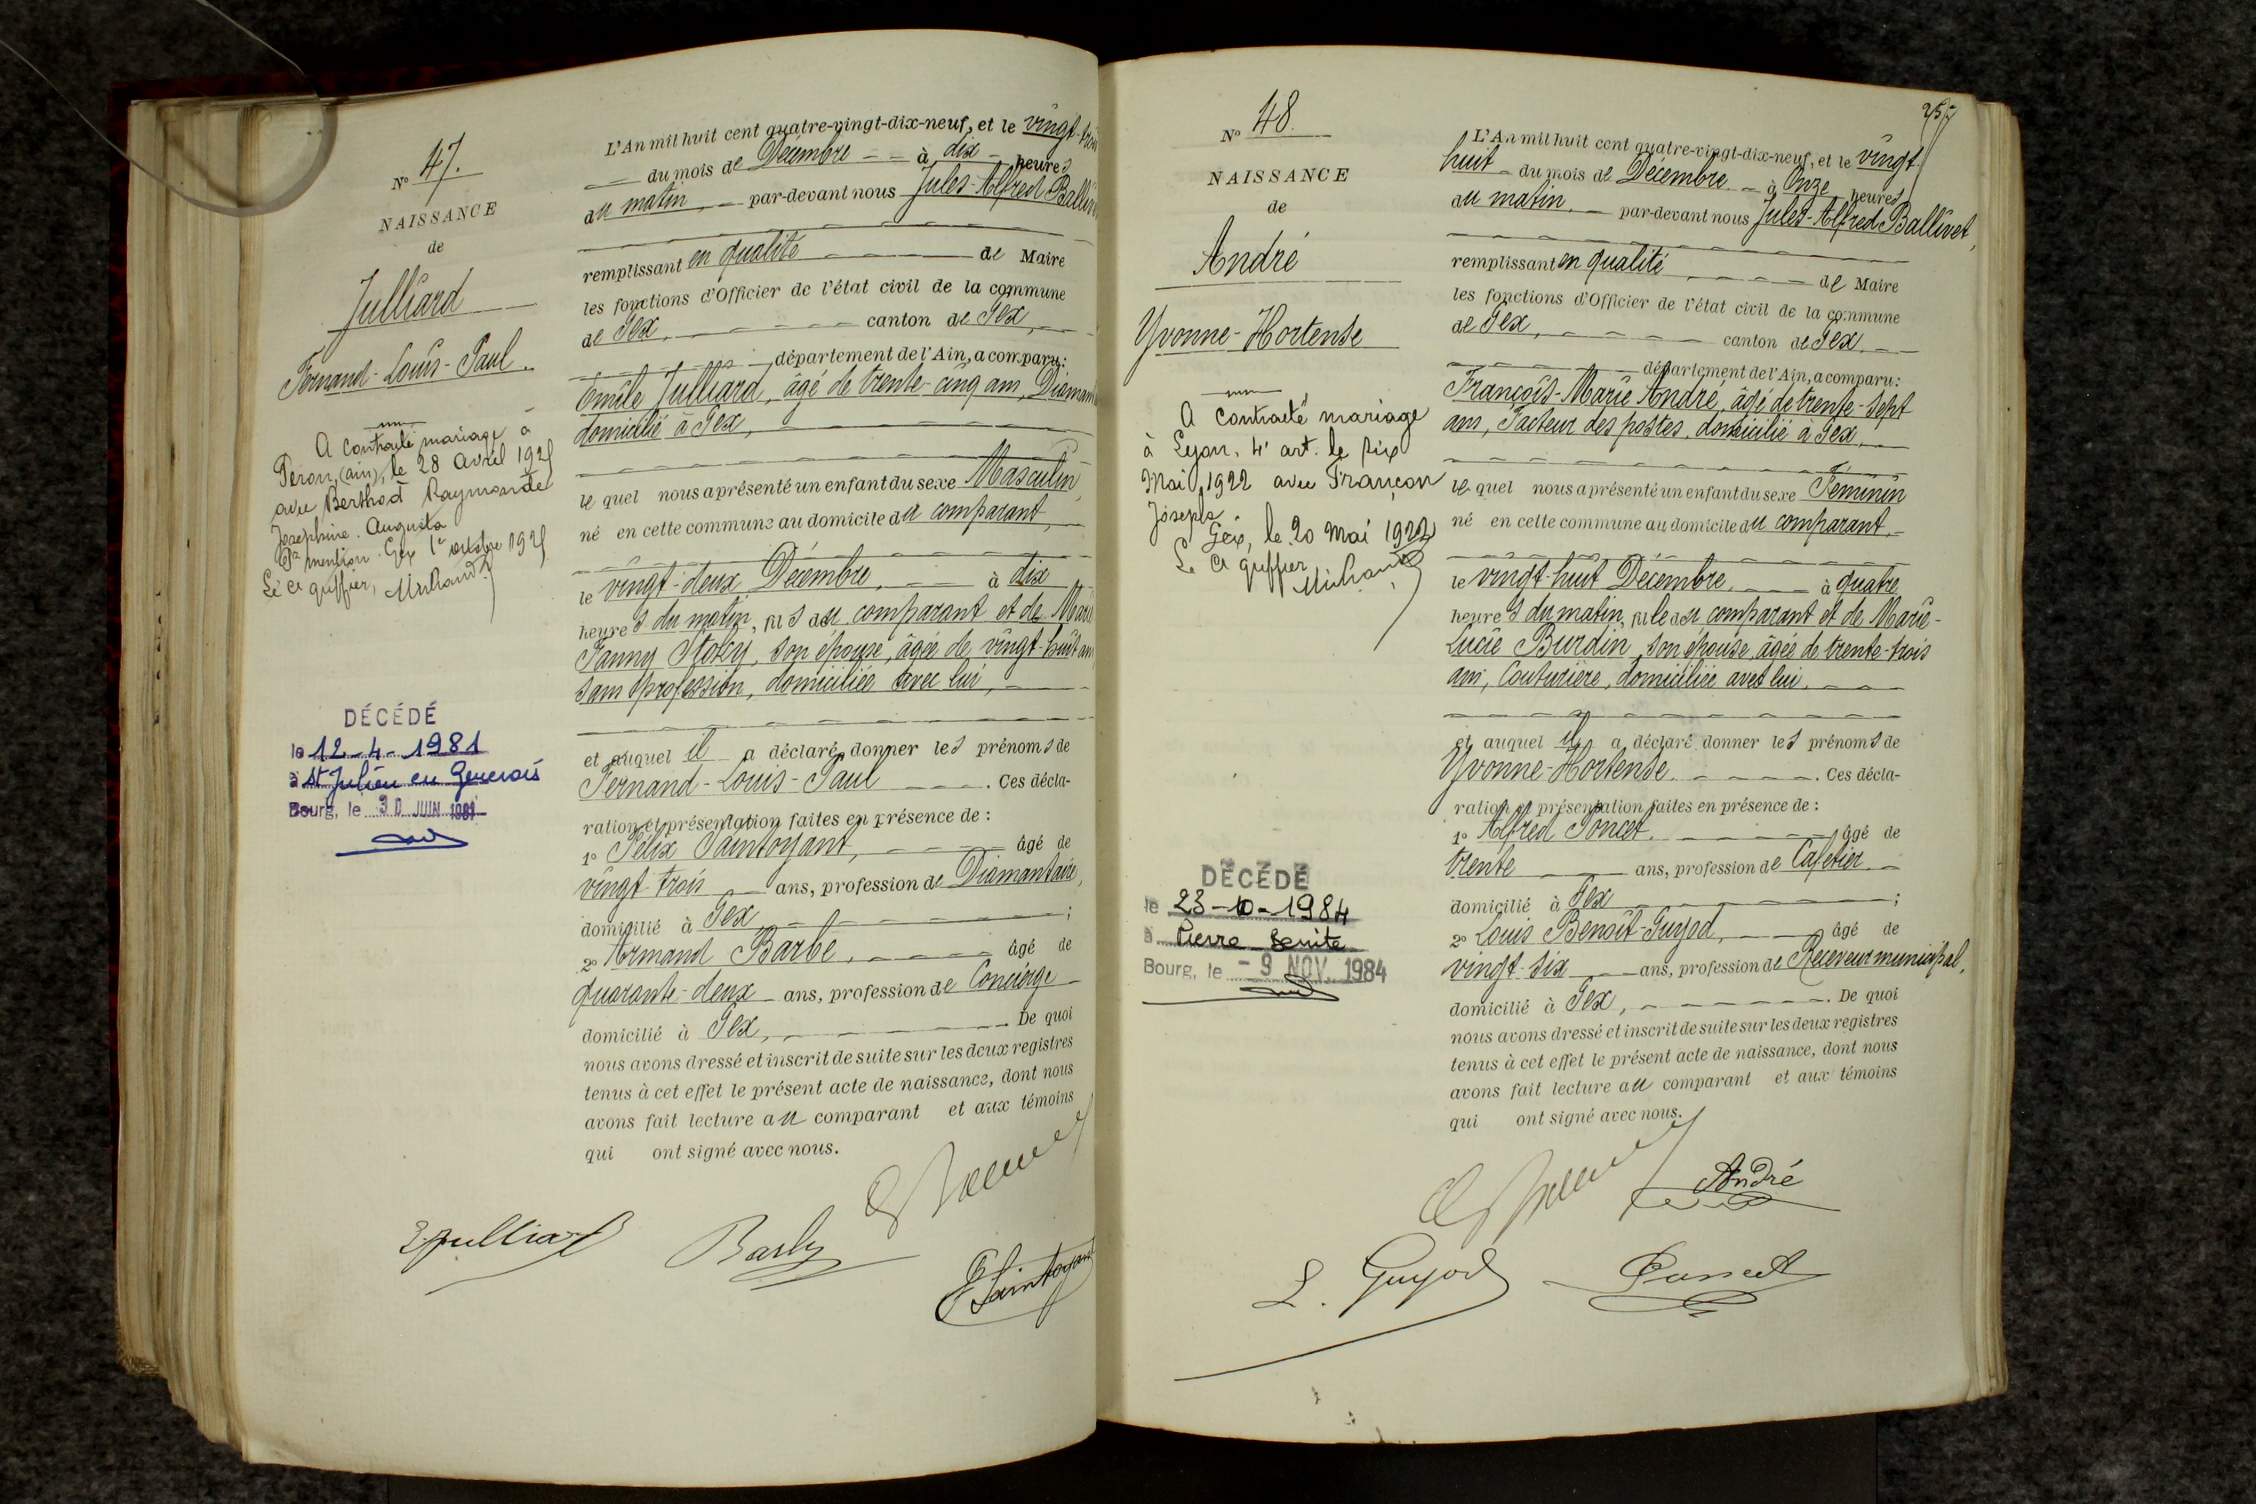 N° 47.
NAISSANCE
de
Julliard
Fernand-Louis-Paul.
A contracté mariage à
Péron, (ain), le 28 avril 1925
avec Berthod Raymonde
Josephine. Augusta
Pr mention. Gex 1er octobre 1925
Le Cr greffier,
DÉCÉDÉ
le 12-4-1981
à St Julien en Genevois
Bourg, le 30 JUIN 1981
L'An mil huit cent quatre-vingt-dix-neuf, et le vingt-trois
du mois de Décembre à dix heures
du matin, par-devant nous Jules-Alfred Ballivet
remplissant en qualité de Maire
les fonctions d'Officier de l'état civil de la commune
de Gex, canton de Gex,
département de l'Ain, a comparu:
Emile Julliard, âgé de trente-cinq ans, Diamantaire
domicilié à Gex,
le quel nous a présenté un enfant du sexe Masculin,
né en cette commune au domicile du comparant,
le vingt-deux Décembre, à dix
heures du matin, fils du comparant et de Marie
Fanny Stoky, son épouse, âgée de vingt-huit ans
sans profession, domiciliée avec lui,
et auquel il a déclaré donner les prénoms de
Fernand-Louis-Paul. Ces décla-
ration et présentation faites en présence de :
1° Félix Saintoyant, âgé de
vingt-trois ans, profession de Diamantaire,
domicilié à Gex ;
2° Armand Barbe, âgé de
quarante-deux ans, profession de Concierge
domicilié à Gex, De quoi
nous avons dressé et inscrit de suite sur les deux registres
tenus à cet effet le présent acte de naissance, dont nous
avons fait lecture au comparant et aux témoins
qui ont signé avec nous.
E. Julliard
Barbe
F Saintoyant
257
N° 48.
NAISSANCE
de
André
Yvonne-Hortense
A contracté mariage
à Lyon, 4e art. le dix
Mai 1922 avec Françon
Joseph.
Gex, le 20 Mai 1922
Le Cr greffier
DÉCÉDÉ
le 23-10-1984
à Pierre Benite
Bourg, le - 9 NOV. 1984
L'An mil huit cent quatre-vingt-dix-neuf, et le vingt
huit du mois de Décembre à Onze heures
du matin, par-devant nous Jules-Alfred Ballivet,
remplissant en qualité de Maire
les fonctions d'Officier de l'état civil de la commune
de Gex, canton de Gex
département de l'Ain, a comparu:
François-Marie André, âgé de trente-sept
ans, Facteur des postes, domicilié à Gex,
le quel nous a présenté un enfant du sexe Féminin
né en cette commune au domicile du comparant,
le vingt-huit Décembre, à quatre
heures du matin, fille du comparant et de Marie-
Lucie Burdin son épouse, âgée de trente-trois
ans, Couturière, domiciliée avec lui,
et auquel il a déclaré donner les prénoms de
Yvonne-Hortense. Ces décla-
ration et présentation faites en présence de :
1° Alfred Poncet, âgé de
trente ans, profession de Cafetier
domicilié à Gex ;
2° Louis Benoît-Guyod, âgé de
vingt-six ans, profession de Receveur municipal,
domicilié à Gex, De quoi
nous avons dressé et inscrit de suite sur les deux registres
tenus à cet effet le présent acte de naissance, dont nous
avons fait lecture au comparant et aux témoins
qui ont signé avec nous.
André
L. Guyod
Poncet